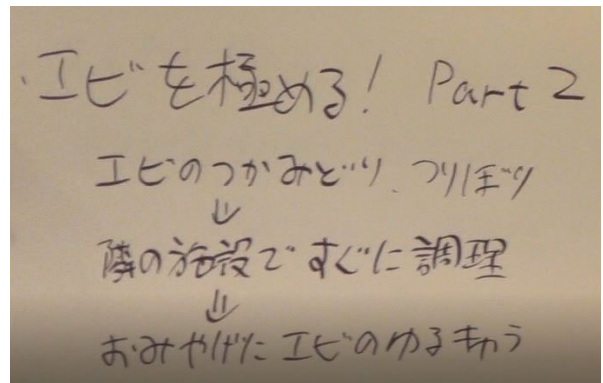 ・エビを極める! Part 2
エビのつかみどり、つりぼり
⇓
隣の施設ですぐに調理
⇓
おみやげに エビのゆるキャラ